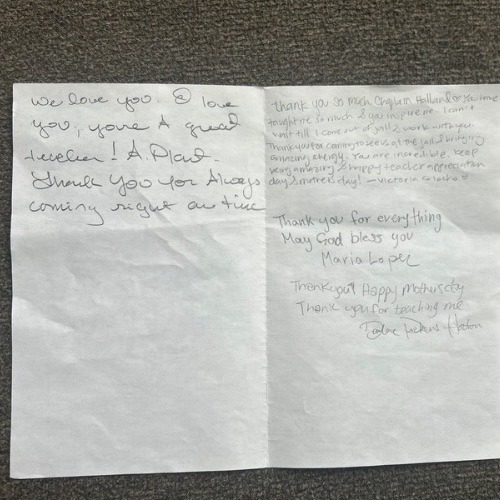 We love you. I love
you, youre A great
teacher! A. Plant.
Thank You for Always
coming right on time
Thank you so much Chaplain Holland for You have
taught me so much & you inspire me. I can't
wait till I come out of jail & work with you.
Thank you for coming to see us at the jail & bringing
amazing energy. You are incredible, keep
being amazing & happy teacher appreciation
day & mother's day! - Victoria
Thank you for everything
May God bless you
Maria Lopez
Thank you! Happy Mothersday
Thank you for teaching me